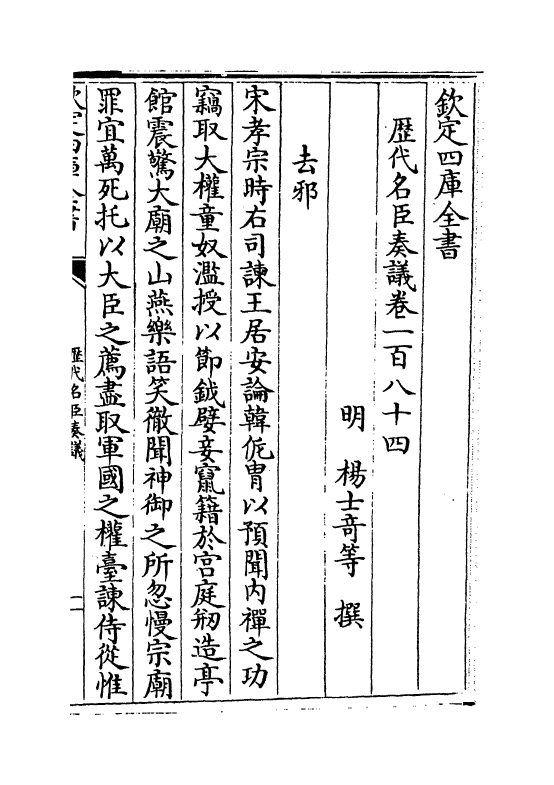 欽定四庫全書
歷代名臣奏議卷一百八十四
明 楊士竒等 撰
去邪
宋孝宗時右司諫王居安論韓侂胄以預聞内禪之功
竊取大權童奴濫授以節鉞嬖妾竄籍於宫庭剏造亭
館震驚太廟之山燕樂語笑徹聞神御之所忽慢宗廟
罪宜萬死托以大臣之薦盡取軍國之權臺諫侍從惟
歷代名臣奏議